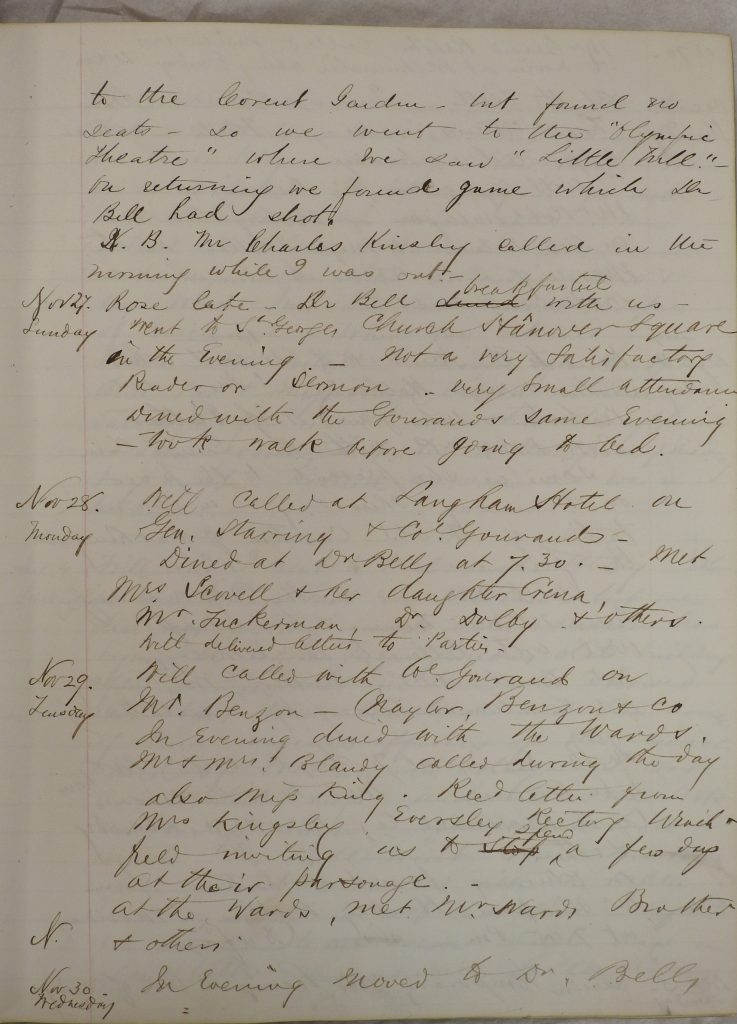 to the Covent Garden - but found no
seats - so we went to the "Olympic
Theatre" where we saw "Little Nell." -
On returning we found game which Dr
Bell had shot.
N. B. Mr Charles Kinsley called in the
morning while I was out -
breakfasted
Nov 27. Rose late - Dr Bell dined with us -
Sunday went to St. Georges Church Hanover Square
in the Evening - Not a very Satisfactory
Reader or Sermon - very small attendance
Dined with the Gourauds same Evening
- took walk before going to bed.
Nov 28. Will called at Langham Hotel on
Monday Gen. Starring & Col Gouraud -
Dined at Dr Bells at 7.30. - Met
Mrs Scovell & her daughter Crena,
Mr. Tuckerman, Dr. Dolby & others.
Will delivered letters to Parties -
Nov 29. Will called with Col Gouraud on
Tuesday Mr. Benzon - (Naylor, Benzon & Co
In Evening dined with the Wards.
Mr & Mrs. Blandy called during the day
also Miss King. Recd letter from
Mrs Kingsley Eversley Rectory Winch-
spend
field inviting us to stop a few days
at their parsonage. -
at the Wards, met Mr Wards Brother
N. & others
Nov 30 In Evening moved to Dr. Bells
Wednesday